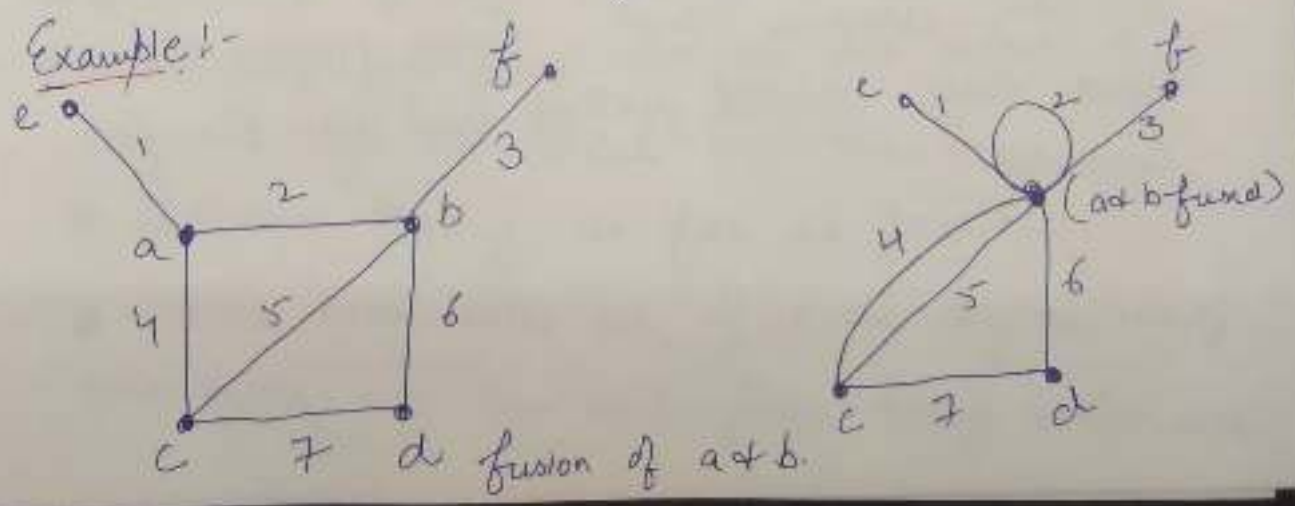 Example:-
e
f
1
3
2
a
b
4
5
6
c
7
d
fusion of a & b.
e
1
2
f
3
(a & b fused)
4
5
6
c
7
d